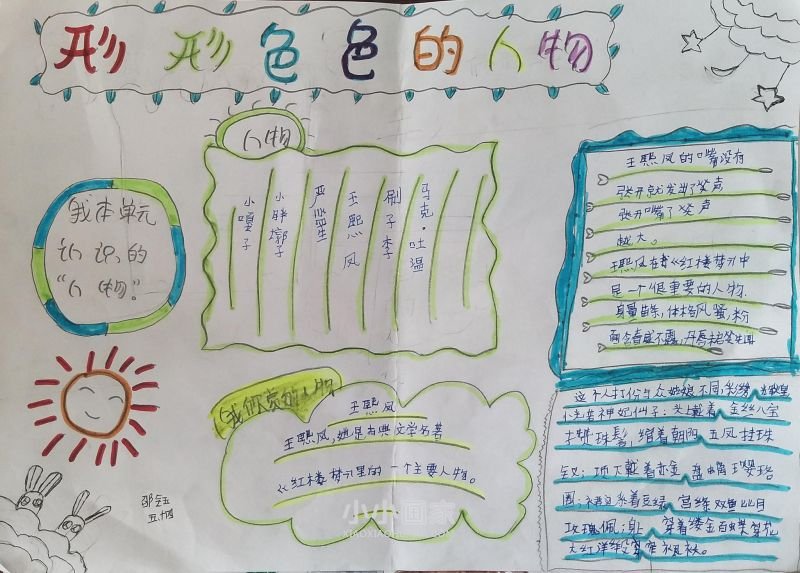 形形色色的人物
人物
我本单元
认识的
“人物”
小嘎子
小胖墩子
严监生
王熙凤
刷子李
马克·吐温
我欣赏的人物
王熙凤
王熙凤,她是古典文学名著
《红楼梦》里的一个主要人物。
王熙凤的嘴没有
张开就发出了笑声
张开嘴了笑声
越大。
王熙凤在我《红楼梦》中
是一个很重要的人物.
身量苗条,体格风骚,粉
面含春威不露,丹唇未启笑先闻
这个人打扮与众姑娘不同彩绣
神妃仙子:头上戴着金丝八宝
攒珠髻,绾着朝阳五凤挂珠
钗;项下戴着赤金盘螭璎珞
圈;裙边系着豆绿宫绦双鱼比目
玫瑰佩;身上穿着缕金百蝶穿花
大红洋缎窄裉袄。
五四
小小画家
XIAOXIAOHUAJIA.COM